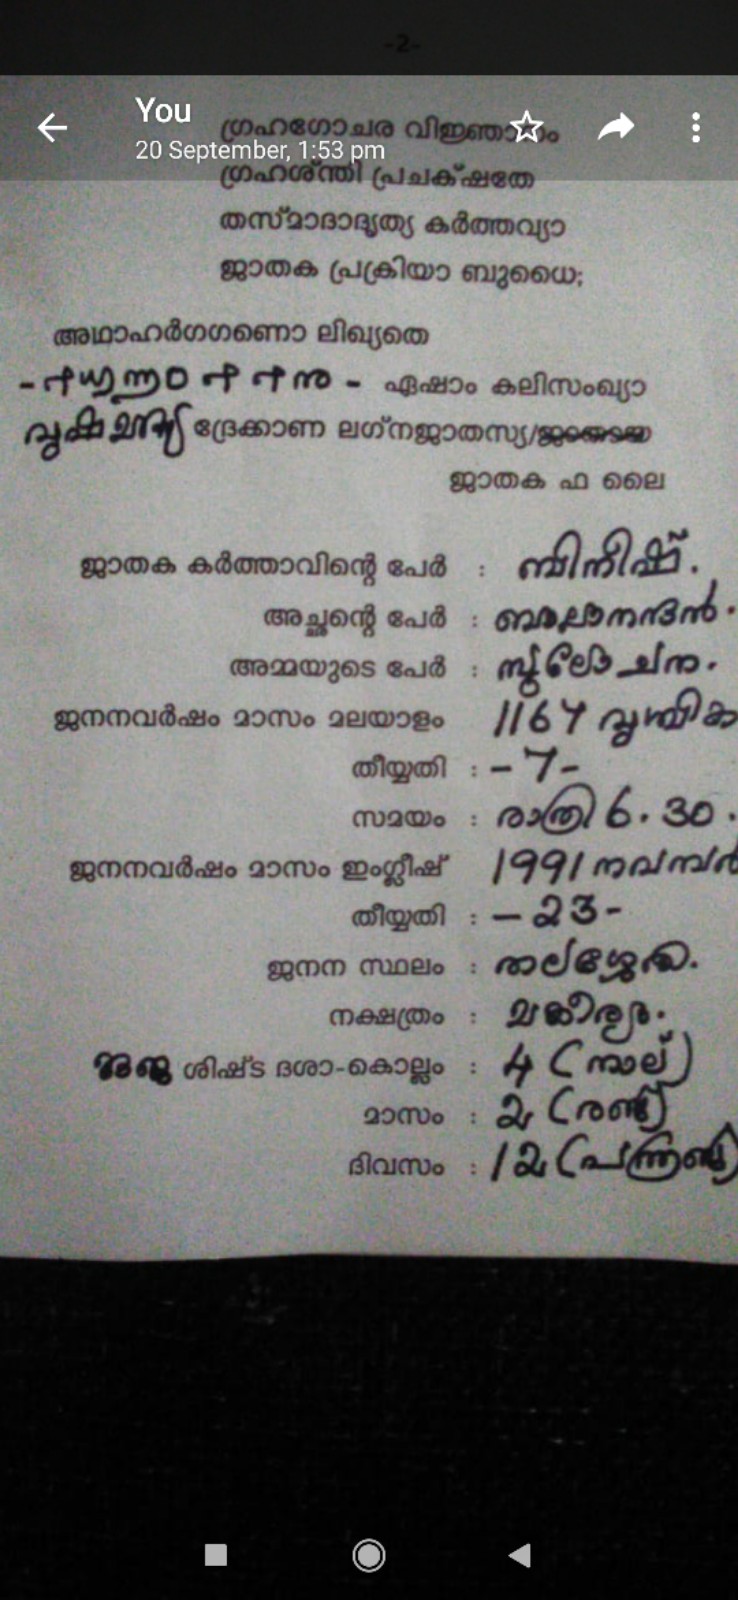 -2-
You
20 September, 1:53 pm
ഗ്രഹഗോചര
ഗ്രഹശ്ന്തി പ്രചക്ഷതേ
തസ്മാദാദൃത്യ കർത്തവ്യാ
ജാതക പ്രക്രിയാ ബുധൈ;
അഥാഹർഗഗണൊ ലിഖ്യതെ
ഏഷാം കലിസംഖ്യാ
ദ്രേക്കാണ ലഗ്നജാതസ്യ/
ജാതക ഫ ലൈ
ജാതക കർത്താവിന്റെ പേർ : ബിനീഷ്.
അച്ഛന്റെ പേർ : ബാലാനന്ദൻ.
അമ്മയുടെ പേർ : സുലോചന.
ജനനവർഷം മാസം മലയാളം 1167 വൃശ്ചിക
തീയ്യതി : - 7 -
സമയം : രാത്രി 6.30.
ജനനവർഷം മാസം ഇംഗ്ലീഷ് 1991 നവമ്പർ
തീയ്യതി : - 23 -
ജനന സ്ഥലം : തലശ്ശേരി.
നക്ഷത്രം : മകീര്യം.
ശിഷ്ട ദശാ-കൊല്ലം : 4 (നാല്)
മാസം : 2 (രണ്ട്)
ദിവസം : 12 (പന്ത്രണ്ട്)